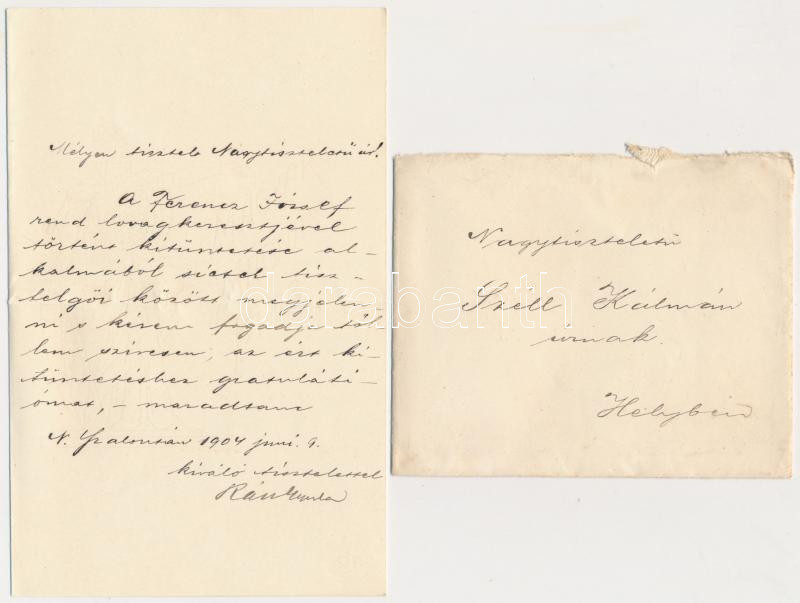 Mélyen tisztelt Nagytiszteletü úr!
A Ferencz József
rend lovagkeresztjével
történt kitüntetése al-
kalmából sietek tisz-
telgői között megjelen-
ni s kérem fogadja tő-
lem szívesen, az ért ki-
tüntetéshez gratuláti-
ómat, - maradtam
N. Szalontán 1904 juni. 9.
kiváló tisztelettel
Nagytiszteletü
Széll Kálmán
úrnak.
Helyben
darabanth